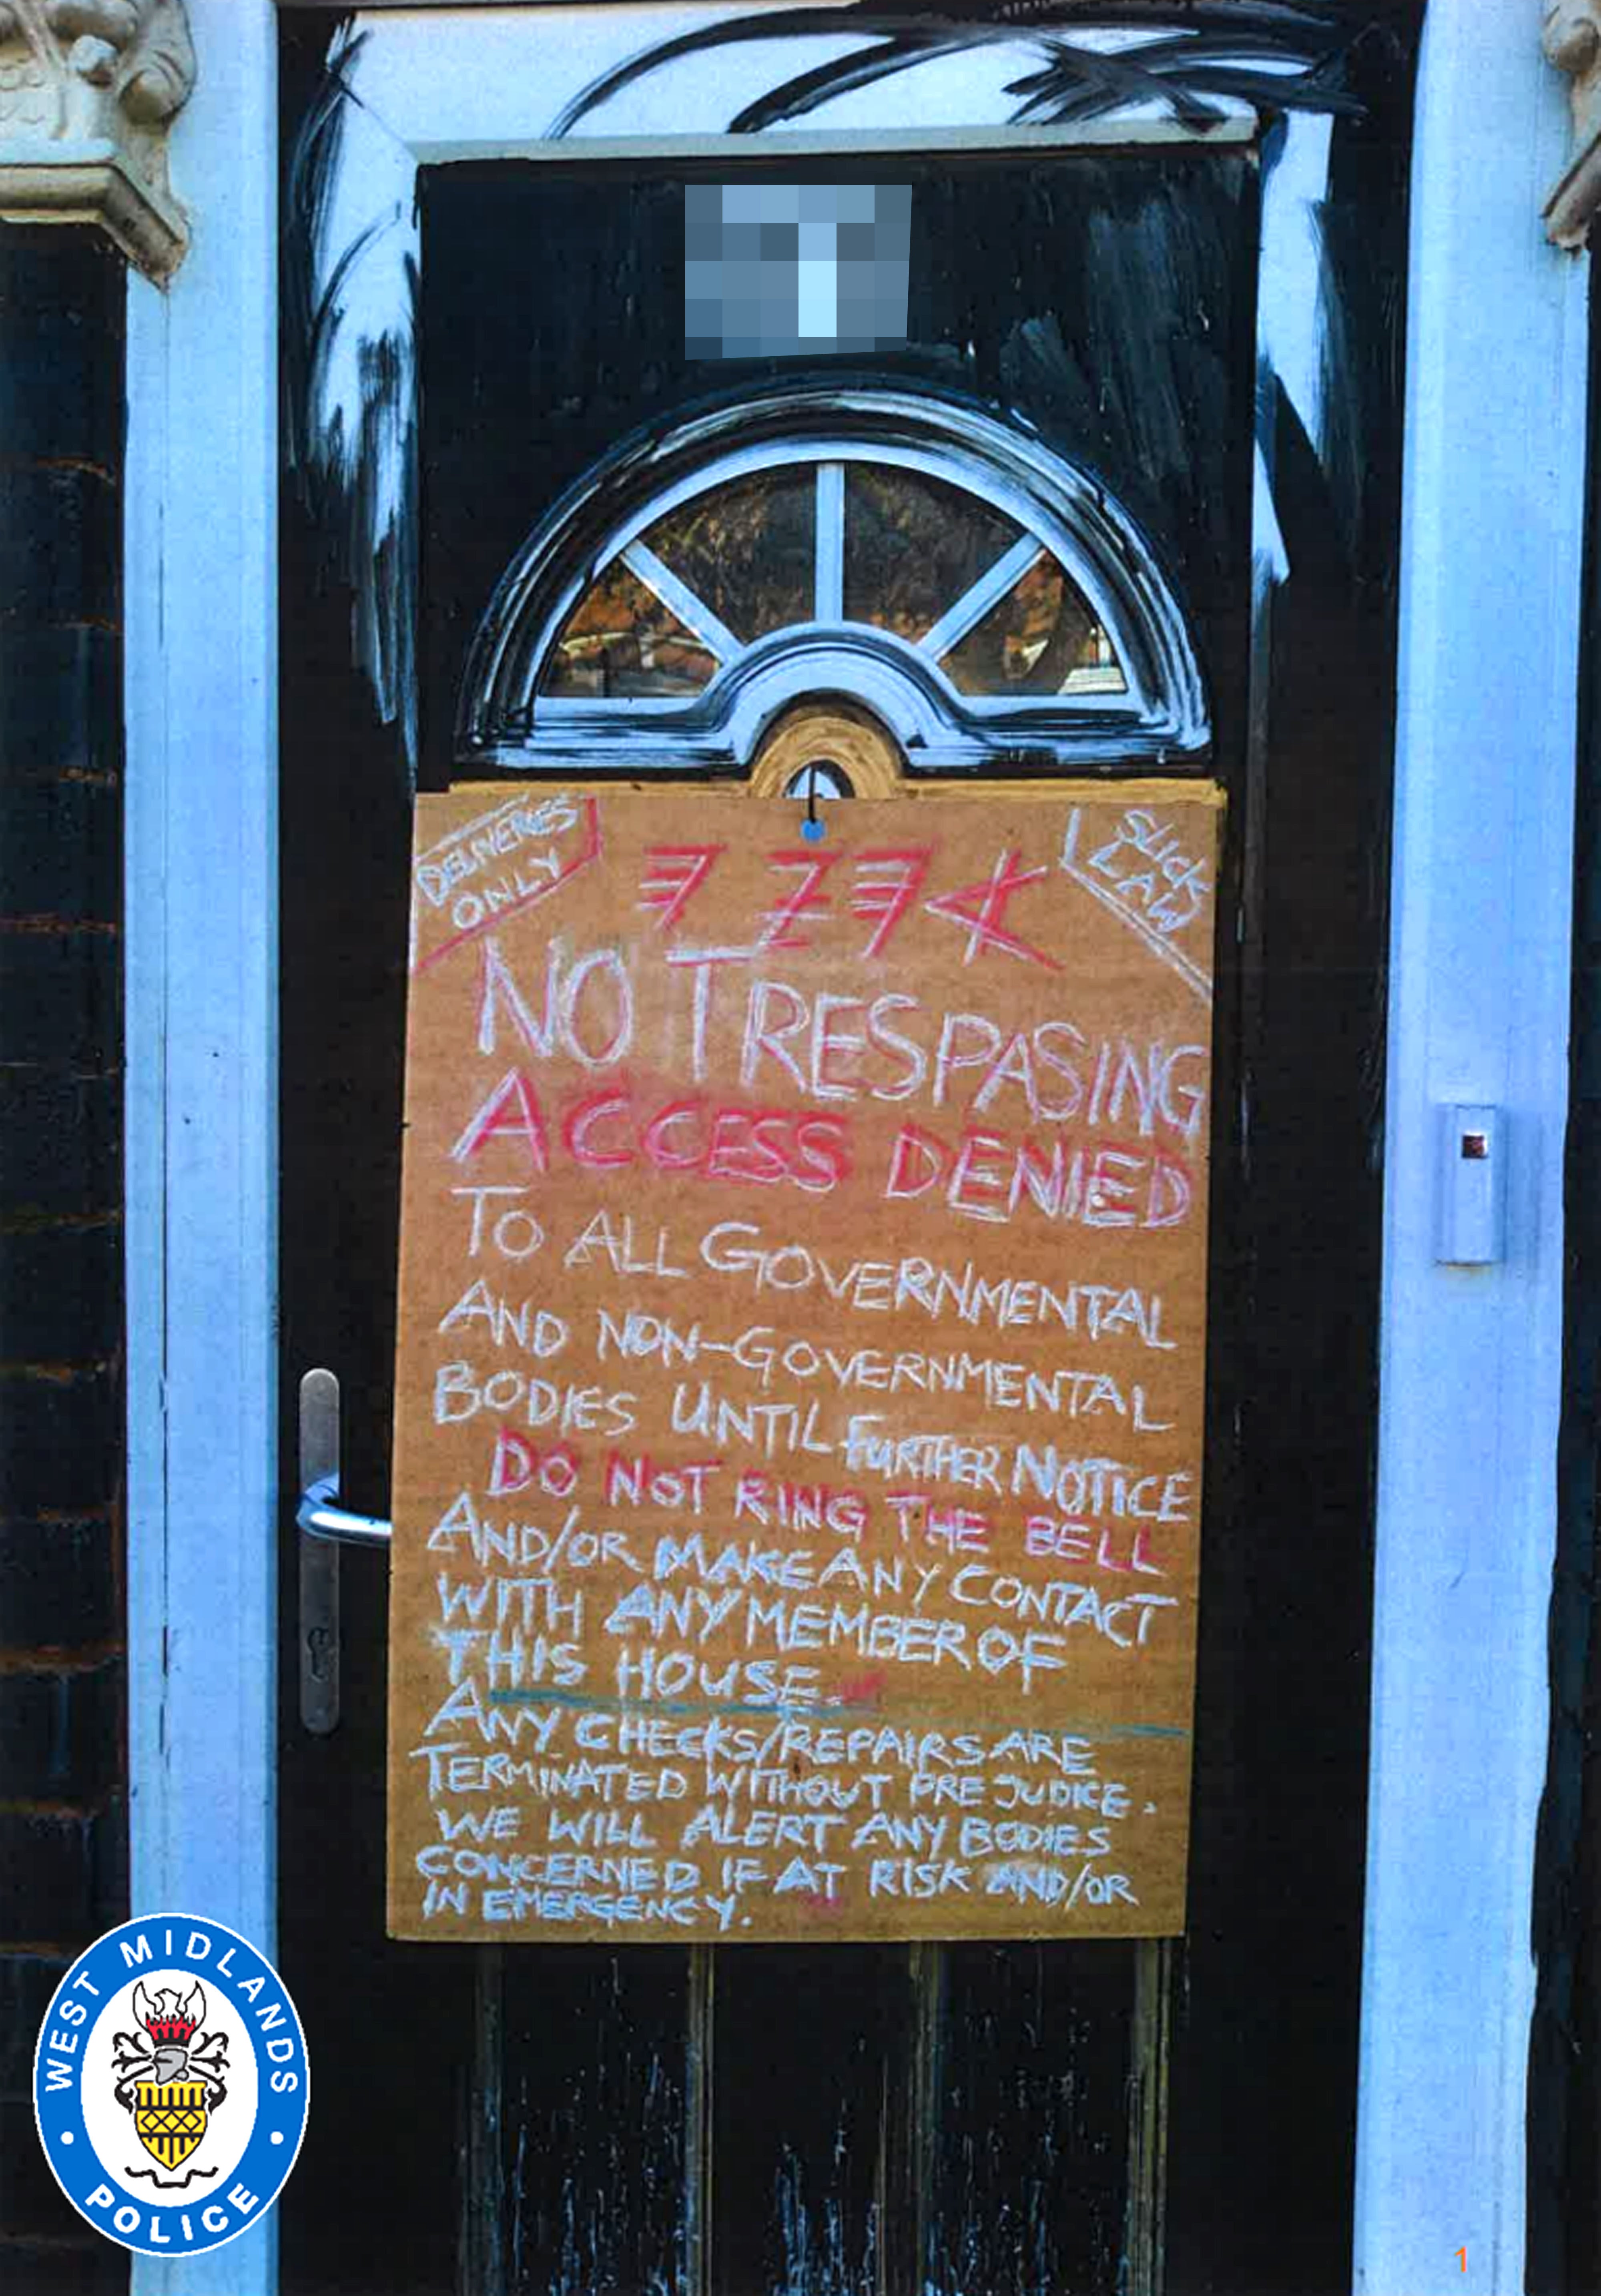 DELIVERIES
ONLY
SLICK
LAW
NO TRESPASING
ACCESS DENIED
TO ALL GOVERNMENTAL
AND NON-GOVERNMENTAL
BODIES UNTIL FURTHER NOTICE
DO NOT RING THE BELL
AND/OR MAKE ANY CONTACT
WITH ANY MEMBER OF
THIS HOUSE.
ANY CHECKS/REPAIRS ARE
TERMINATED WITHOUT PREJUDICE.
WE WILL ALERT ANY BODIES
CONCERNED IF AT RISK AND/OR
IN EMERGENCY.
WEST MIDLANDS
POLICE
1